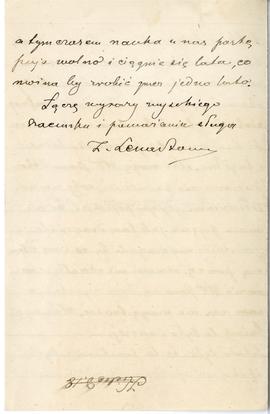 a tym czasem nauka u nas postę-
puje wolno i ciągnie się lata, co
winna by zrobić przez jedno lato.
Łączę wyrazy wysokiego
szacunku i poważania sługa